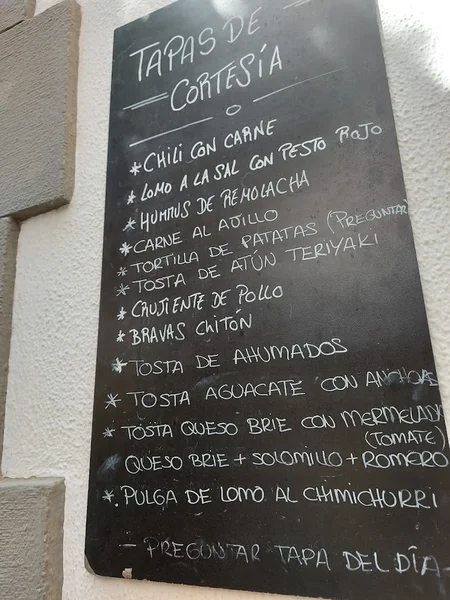 TAPAS DE
CORTESÍA
* CHILI CON CARNE
* LOMO A LA SAL CON PESTO ROJO
* HUMMUS DE REMOLACHA
* CARNE AL AJILLO
* TORTILLA DE PATATAS (PREGUNTAR
* TOSTA DE ATÚN TERIYAKI
* CRUJIENTE DE POLLO
* BRAVAS CHITÓN
* TOSTA DE AHUMADOS
* TOSTA AGUACATE CON ANCHOAS
* TOSTA QUESO BRIE CON MERMELADA
(TOMATE)
QUESO BRIE + SOLOMILLO + ROMERO
*. PULGA DE LOMO AL CHIMICHURRI
- PREGUNTAR TAPA DEL DÍA -